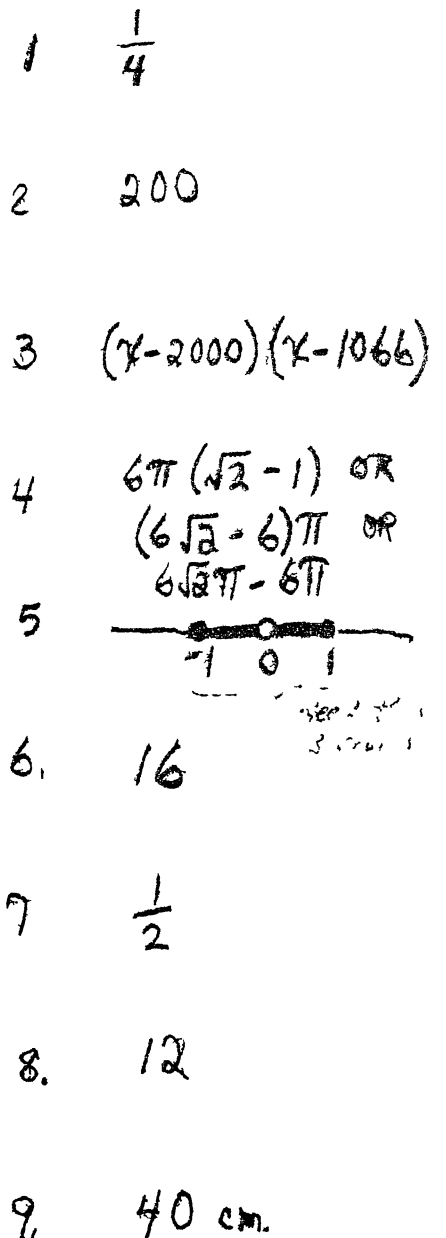 1 1/4
2 200
3 (x-2000)(x-1066)
4 6π(√2-1) OR
(6√2-6)π OR
6√2π-6π
5
-1 0 1
6. 16
7 1/2
8. 12
9. 40 cm.